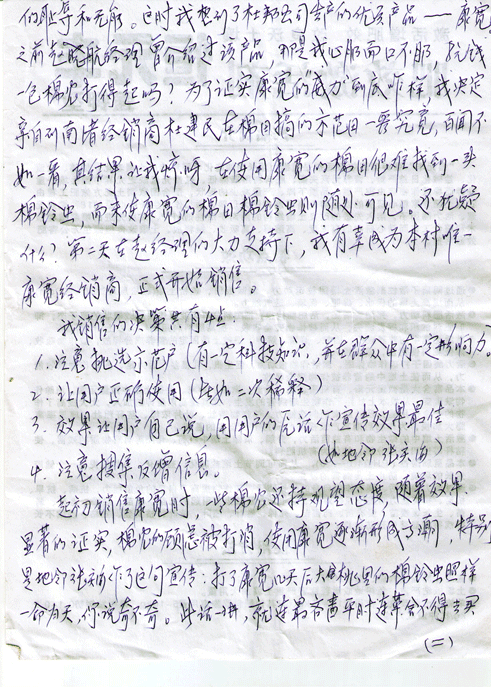 们的耻辱和无能。这时我想到了杜邦公司生产的优质产品——康宽,
之前赵晓航经理曾介绍过该产品,那是我心服而口不服,抗钱
色棉农打得起吗?为了证实康宽的"威力"到底咋样,我决定
亲自到南堵经销商杜建民在棉田搞的示范田一看究竟,百闻不
如一看,其结果让我惊呀,在使用康宽的棉田很难找到一头
棉铃虫,而未使康宽的棉田棉铃虫则随处可见。还犹疑
什么?第二天在赵经理的大力支持下,我有幸成为本村唯一
康宽经销商,正式开始销售。
我销售的决策共有4点:
1. 注意挑选示范户(有一定科技知识,并在群众中有一定影响力。
2. 让用户正确使用(比如二次稀释)
3. 效果让用户自己说,用用户的原话作宣传效果最佳
(如地邻张天海)
4. 注意搜集反馈信息。
起初销售康宽时,一些棉农还持观望态度,随着效果
显著的证实,棉农的顾虑被打消,使用康宽逐渐形成高潮,特别
是地邻张海作了这句宣传:打了康宽几天后大桃里的棉铃虫照样
一命归天,你说奇不奇。此话一讲,就连最吝啬平时连草舍不得去买
(二)